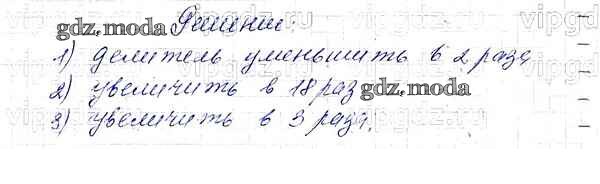 Решение:
1) делитель уменьшить в 2 раза
2) увеличить в 18 раз
3) увеличить в 3 раза.
gdz.moda
gdz.moda
vipgdz.ru